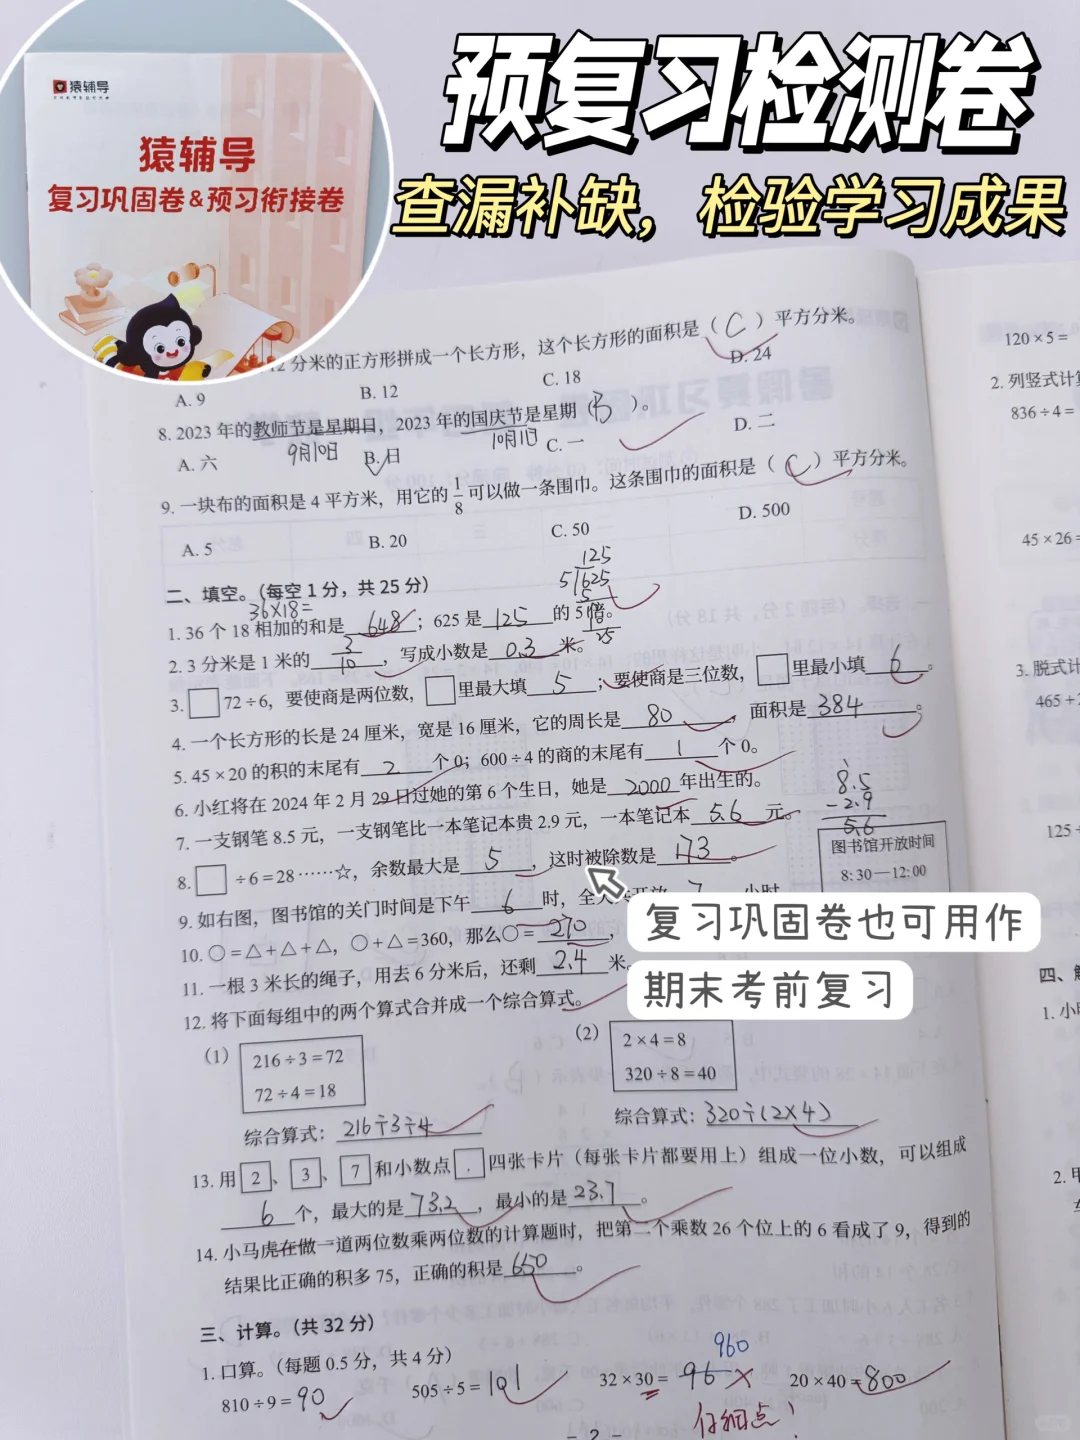 预复习检测卷
查漏补缺，检验学习成果
猿辅导
猿辅导
复习巩固卷&预习衔接卷
2 分米的正方形拼成一个长方形，这个长方形的面积是（ C ）平方分米。
A. 9 B. 12 C. 18 D. 24
8. 2023 年的教师节是星期日，2023 年的国庆节是星期（ B ）。
9月10日 10月1日
A. 六 B. 日 C. 一 D. 二
9. 一块布的面积是 4 平方米，用它的 1/8 可以做一条围巾。这条围巾的面积是（ C ）平方分米。
A. 5 B. 20 C. 50 D. 500
二、填空。（每空 1 分，共 25 分）
36×18=
1. 36 个 18 相加的和是 648 ；625 是 125 的 5 倍。
125
5 625
5
25
2. 3 分米是 1 米的 3/10 ，写成小数是 0.3 米。
3. □72÷6，要使商是两位数，□里最大填 5 ；要使商是三位数，□里最小填 6 。
4. 一个长方形的长是 24 厘米，宽是 16 厘米，它的周长是 80 ，面积是 384 。
5. 45×20 的积的末尾有 2 个 0；600÷4 的商的末尾有 1 个 0。
6. 小红将在 2024 年 2 月 29 日过她的第 6 个生日，她是 2000 年出生的。
7. 一支钢笔 8.5 元，一支钢笔比一本笔记本贵 2.9 元，一本笔记本 5.6 元。
8.5
-2.9
5.6
8. □÷6=28……☆，余数最大是 5 ，这时被除数是 173 。
图书馆开放时间
8:30—12:00
9. 如右图，图书馆的关门时间是下午 6 时，全天共开放 7 小时
10. ○=△+△+△，○+△=360，那么○= 270 ，
11. 一根 3 米长的绳子，用去 6 分米后，还剩 2.4 米。
复习巩固卷也可用作
期末考前复习
12. 将下面每组中的两个算式合并成一个综合算式。
（1） 216÷3=72
72÷4=18
综合算式：216÷3÷4
（2） 2×4=8
320÷8=40
综合算式：320÷(2×4)
13. 用 2 、 3 、 7 和小数点 . 四张卡片（每张卡片都要用上）组成一位小数，可以组成
6 个，最大的是 73.2 ，最小的是 23.7 。
14. 小马虎在做一道两位数乘两位数的计算题时，把第二个乘数 26 个位上的 6 看成了 9，得到的
结果比正确的积多 75，正确的积是 650 。
三、计算。（共 32 分）
1. 口算。（每题 0.5 分，共 4 分）
960
810÷9= 90 505÷5= 101 32×30= 96 20×40= 800
仔细点！
- 2 -
120×5=
2. 列竖式计算
836÷4=
45×26=
3. 脱式计
465+2
125÷
四、解
1. 小
2. 甲